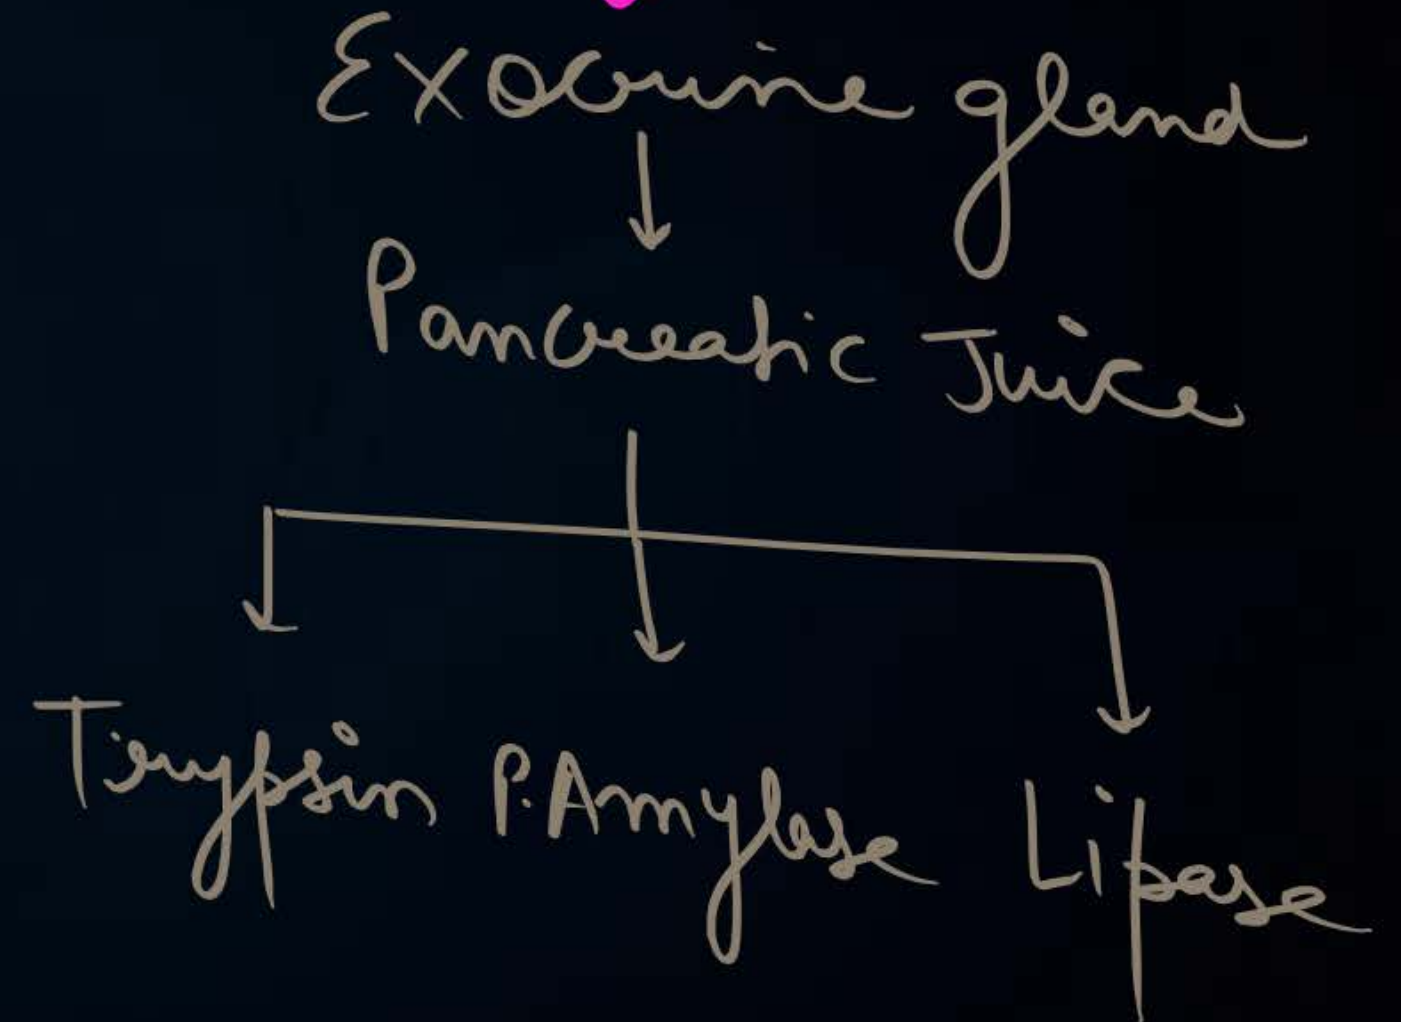 Exocrine gland
Pancreatic Juice
Trypsin P.Amylase Lipase